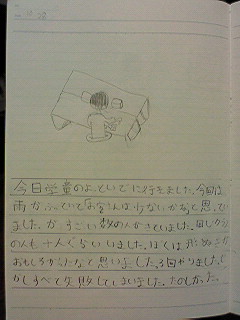 今日学童のよっといでに行きました。今回は
雨がふっていて「お客さんは少ないかな」と思ってい
ました。がすごい数の人がきていました。同じクラス
の人も十人くらいいました。ぼくは
おもしろかったなと思いました。3回やりました。し
かしすべて失敗してしまいました。たのしかった。